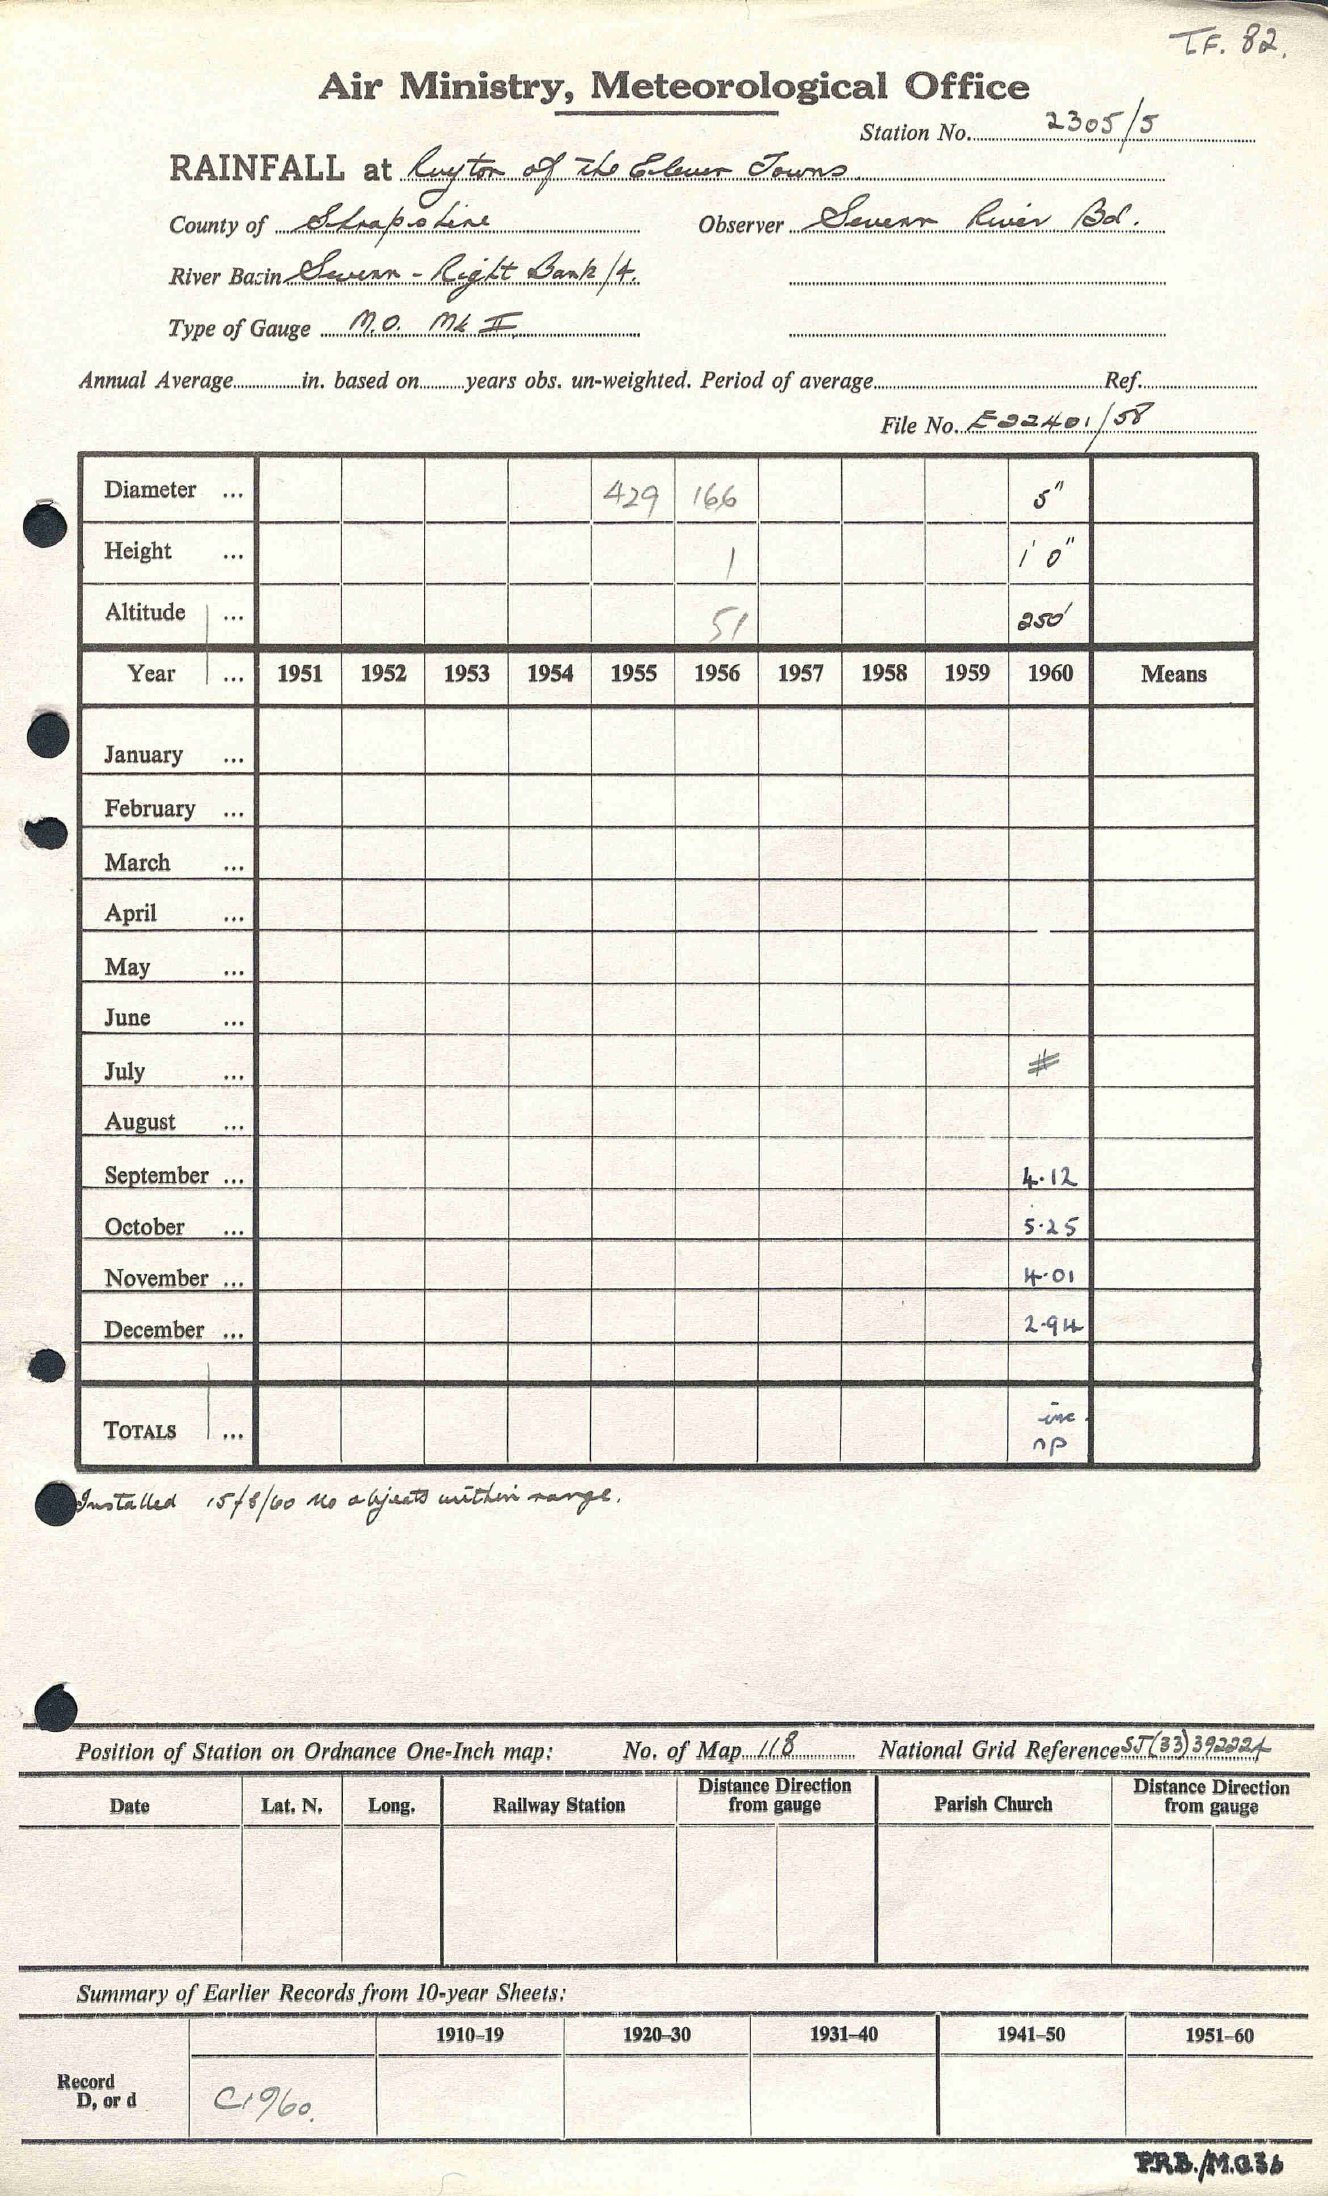 T.F. 82.
Air Ministry, Meteorological Office
Station No. 2305/5
RAINFALL at Ruyton of the Eleven Towns.
County of Shropshire Observer Severn River Bd.
River Basin Severn - Right Bank/4.
Type of Gauge M.O. Mk II
Annual Average in. based on years obs. un-weighted. Period of average Ref.
File No. E22401/58
Diameter ... 429 166 5"
Height ... 1 1' 0"
Altitude ... 51 250'
Year ... 1951 1952 1953 1954 1955 1956 1957 1958 1959 1960 Means
January ...
February ...
March ...
April ...
May ...
June ...
July ...
August ...
September ... 4.12
October ... 5.25
November ... 4.01
December ... 2.94
TOTALS ... inc.
np
Installed 15/8/60 No objects within range.
Position of Station on Ordnance One-Inch map: No. of Map 118 National Grid Reference SJ(33)392224
Date Lat. N. Long. Railway Station Distance Direction from gauge Parish Church Distance Direction from gauge
Summary of Earlier Records from 10-year Sheets:
1910-19 1920-30 1931-40 1941-50 1951-60
Record
D, or d C1960.
P.R.B./M.O.36